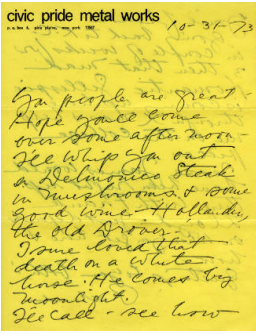 civic pride metal works
10-31-73
You people are great
Hope you'll come
over some after noon-
Ile whip you out
a Delmonico Steak
in mushrooms & some
good wine - Hollander,
the old Drover-
I sure loved that
death on a white
horse. He comes by
moonlight
Ile call - see how